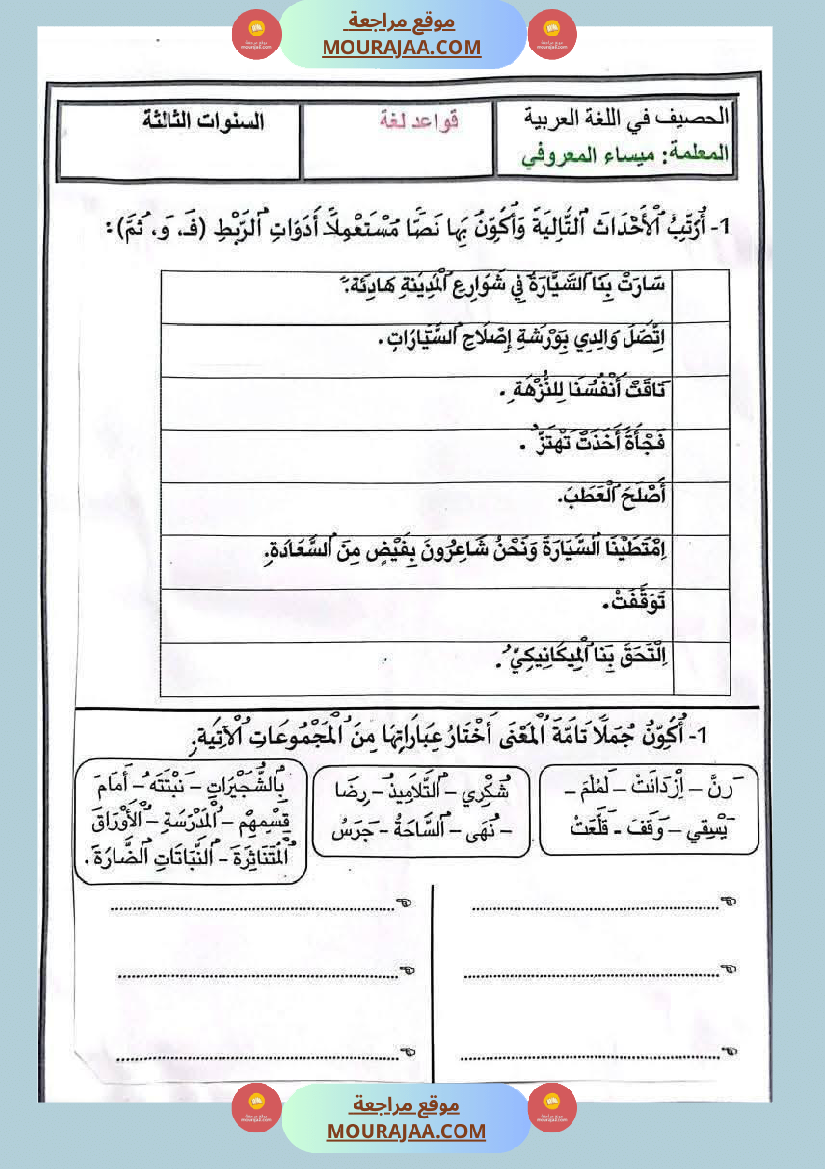 موقع مراجعة
MOURAJAA.COM
الحصيف في اللغة العربية
المعلمة: ميساء المعروفي
قواعد لغة
السنوات الثالثة
1- أُرَتِّبُ الْأَحْدَاثَ التَّالِيَةَ وَأُكَوِّنُ بِهَا نَصًّا مُسْتَعْمِلًا أَدَوَاتِ الرَّبْطِ (فَـ، وَ، ثُمَّ):
سَارَتْ بِنَا السَّيَّارَةُ فِي شَوَارِعِ الْمَدِينَةِ هَادِئَةً.
اِتَّصَلَ وَالِدِي بِوَرْشَةِ إِصْلَاحِ السَّيَّارَاتِ.
تَاقَتْ أَنْفُسُنَا لِلنُّزْهَةِ.
فَجْأَةً أَخَذَتْ تَهْتَزُّ.
أَصْلَحَ الْعَطَبَ.
اِمْتَطَيْنَا السَّيَّارَةَ وَنَحْنُ شَاعِرُونَ بِفَيْضٍ مِنَ السَّعَادَةِ.
تَوَقَّفَتْ.
اِلْتَحَقَ بِنَا الْمِيكَانِيكِيُّ.
1- أُكَوِّنُ جُمَلًا تَامَّةَ الْمَعْنَى أَخْتَارُ عِبَارَاتِهَا مِنَ الْمَجْمُوعَاتِ الْآتِيَةِ.
رَنَّ – اِزْدَانَتْ – لَمْلَمَ –
يَسْقِي – وَقَفَ - قَلَّعَتْ
شُكْرِي – التَّلَامِيذُ – رِضَا
– نُهَى – السَّاحَةُ – جَرَسُ
بِالشُّجَيْرَاتِ – نَبْتَتَهُ – أَمَامَ
قِسْمِهِمْ – الْمَدْرَسَةِ – الْأَوْرَاقَ
الْمُتَنَاثِرَةَ – النَّبَاتَاتِ الضَّارَّةَ.
موقع مراجعة
MOURAJAA.COM